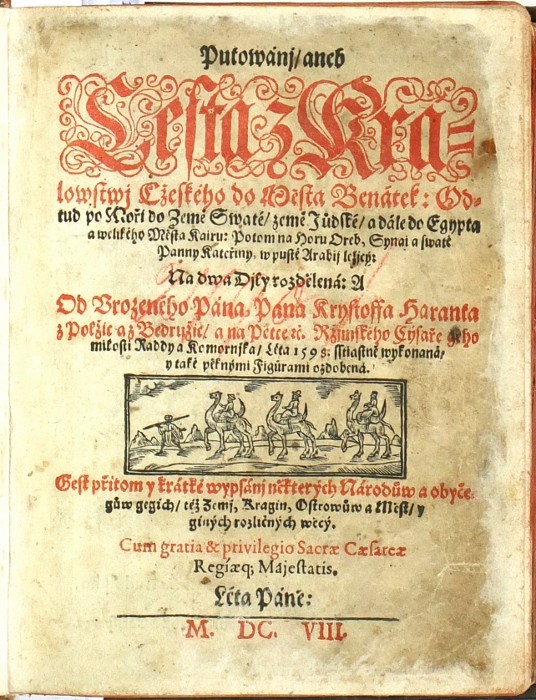 Putowánj/ aneb
Cesta z Krá-
lowstwj Cžeského do Města Benátek: Od-
tud po Moři do Země Swaté/ země Jůdské/ a dále do Egypta
a welikého Města Kairu: Potom na Horu Oreb, Synai a swaté
Panny Kateřiny, w pusté Arabij ležjcý:
Na dwa Djly rozdělená: A
Od Vrozeného Pána, Pana Krysstoffa Haranta
z Polžic a z Bedružic/ a na Pětce ꝛc. Ržjmského Cýsaře geho
milosti Raddy a Komornjka/ Léta 1598. sstiastně wykonaná/
y také pěknými Figůrami ozdobená.
Gest přitom y krátké wypsánj některých Národůw a obyče-
gůw gegich/ též Zemj, Kragin, Ostrowůw a Měst/ y
giných rozličných wěcý.
Cum gratia & privilegio Sacræ Cæsareæ
Regiæq; Majestatis.
Léta Páně:
M. DC. VIII.